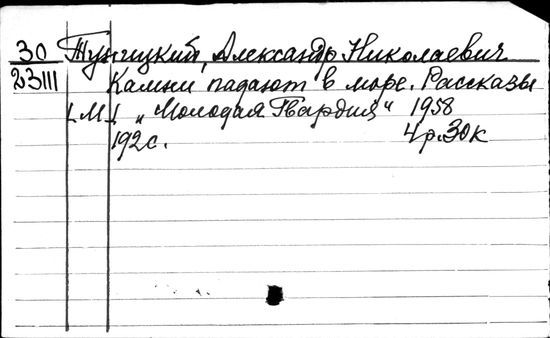 30 Тунгицкий, Александр Николаевич
23111 Камни падают в море. Рассказы
[М.] „Молодая Гвардия" 1958
192 с. 4р.30к